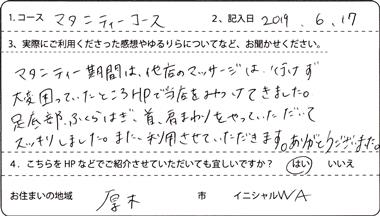 1.コース マタニティーコース 2、記入日 2019.6.17
3、実際にご利用くださった感想やゆるりらについてなど、お聞かせください。
マタニティー期間は、他店のマッサージは、行けず
大変困っていたところHPで当店をみつけてきました。
足底部、ふくらはぎ、首、肩まわりをやっていただいて
スッキリしました。また、利用させていただきます。ありがとうございました。
4．こちらをHPなどでご紹介させていただいても宜しいですか？ はい いいえ
お住まいの地域 厚木 市 イニシャルWA